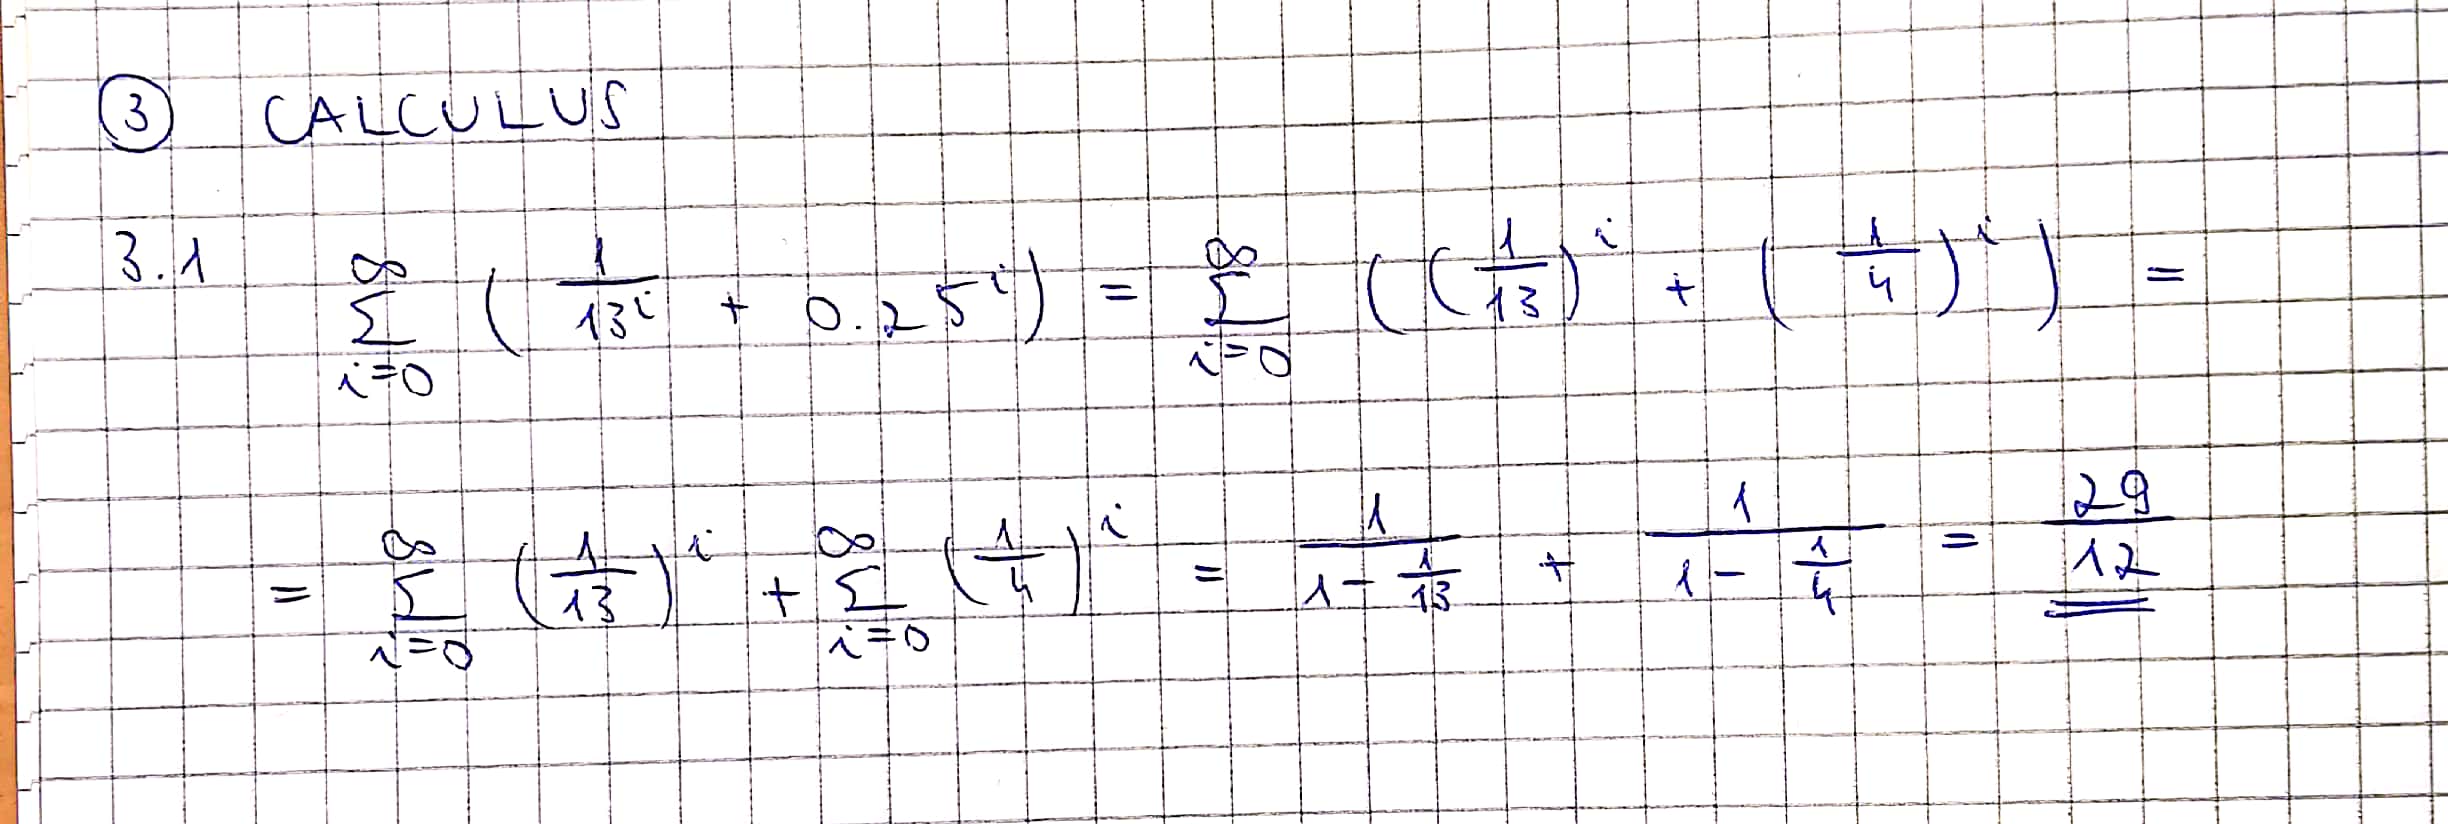 ③ CALCULUS
3.1 ∞∑i=0 ( 1/13ⁱ + 0.25ⁱ ) = ∞∑i=0 ( (1/13)ⁱ + (1/4)ⁱ ) =
= ∞∑i=0 (1/13)ⁱ + ∞∑i=0 (1/4)ⁱ = 1/(1 - 1/13) + 1/(1 - 1/4) = 29/12